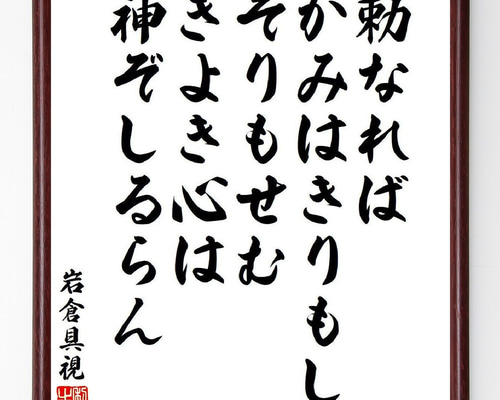 勅なれば
かみはきりもし
そりもせむ
きよき心は
神ぞしるらん
岩倉具視